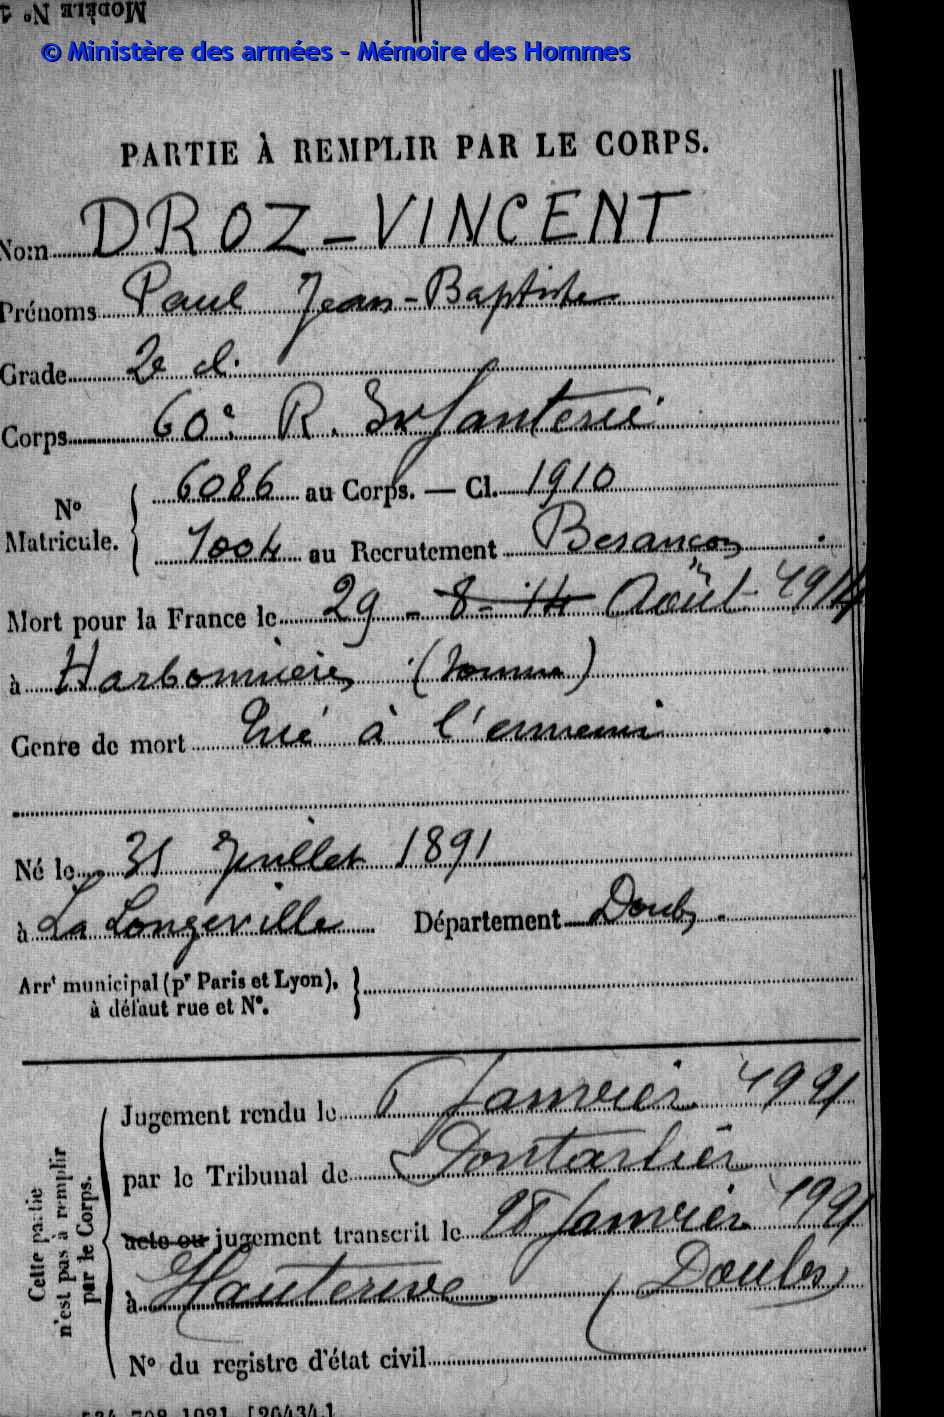 MODÈLE N° 1
© Ministère des armées - Mémoire des Hommes
PARTIE À REMPLIR PAR LE CORPS.
Nom DROZ-VINCENT
Prénoms Paul Jean-Baptiste
Grade 2e cl.
Corps 60e R. Infanterie
N° Matricule. 6086 au Corps. — Cl. 1910
1004 au Recrutement Besançon
Mort pour la France le 29 - 8 - 14 Août 1914
à Harbonnières (Somme)
Genre de mort Tué à l'ennemi
Né le 31 Juillet 1891
à La Longeville Département Doubs
Arrt municipal (pr Paris et Lyon),
à défaut rue et N°.
Cette partie n'est pas à remplir par le Corps.
Jugement rendu le 6 Janvier 1921
par le Tribunal de Pontarlier
acte ou jugement transcrit le 28 Janvier 1921
à Hauterive (Doubs)
N° du registre d'état civil
534-708-1921. [26434.]